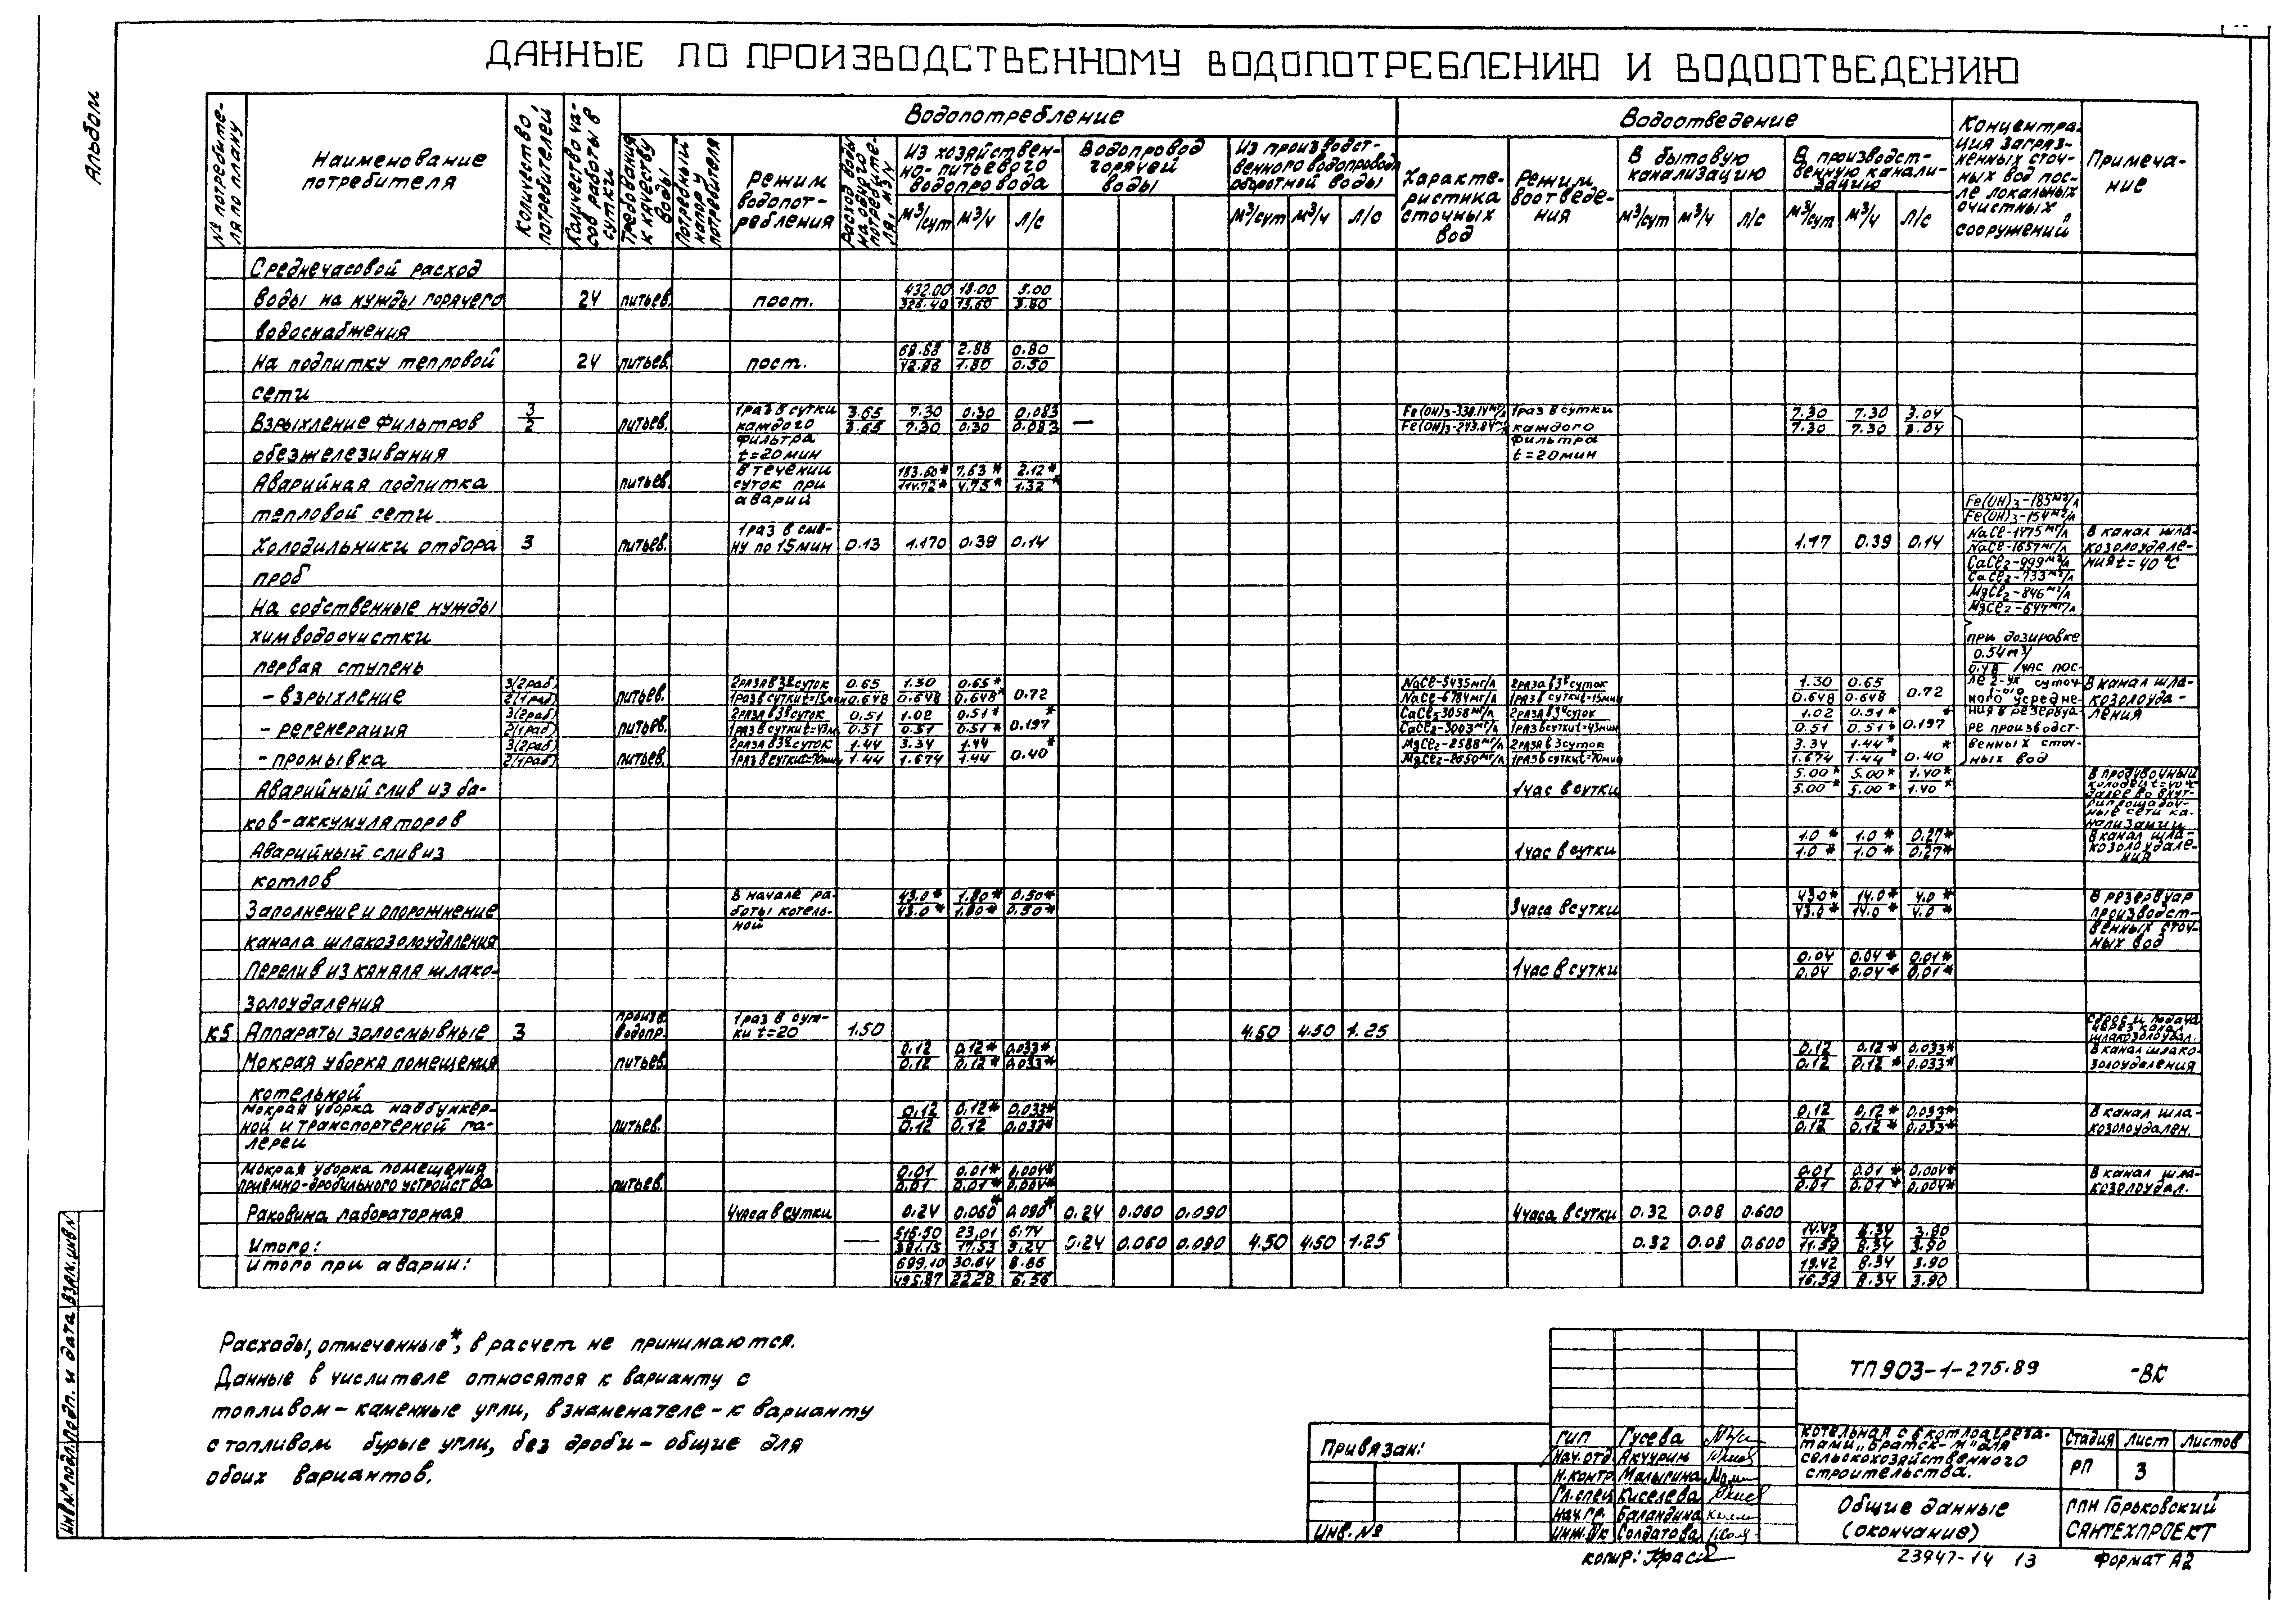 Альбом
ДАННЫЕ ПО ПРОИЗВОДСТВЕННОМУ ВОДОПОТРЕБЛЕНИЮ И ВОДООТВЕДЕНИЮ
№ потребите-
ля по плану
Наименование
потребителя
Количество
потребителей
Количество ча-
сов работы в
сутки
Водопотребление
Требования
к качеству
воды
Потребный
напор у
потребителя
Режим
водопот-
ребления
Расход воды
на одного
потребите-
ля, м3/ч
Из хозяйствен-
но-питьевого
водопровода
м3/сут м3/ч л/с
Водопровод
горячей
воды
Из производст-
венного водопровода
оборотной воды
м3/сут м3/ч л/с
Водоотведение
Характе-
ристика
сточных
вод
Режим
воотведе-
ния
В бытовую
канализацию
м3/сут м3/ч л/с
В производст-
венную канали-
зацию
м3/сут м3/ч л/с
Концентра-
ция загряз-
ненных сточ-
ных вод пос-
ле локальных
очистных
сооружений
Примеча-
ние
Среднечасовой расход
воды на нужды горячего 24 питьев. пост. 432.00 18.00 5.00
326.40 13.60 3.80
водоснабжения
На подпитку тепловой 24 питьев. пост. 68.88 2.88 0.80
42.96 1.80 0.50
сети
Взрыхление фильтров 3 питьев. 1 раз в сутки 3.65 7.30 0.30 0.083 — Fe(OH)3-330.14мг/л 1 раз в сутки 7.30 7.30 3.04
2 каждого 3.65 7.30 0.30 0.083 Fe(OH)3-243.84мг/л каждого 7.30 7.30 3.04
обезжелезивания фильтра t=20мин фильтра t=20мин
Аварийная подпитка питьев. в течении 183.60* 7.63* 2.12*
суток при 114.72* 4.75* 1.32*
тепловой сети аварий
Fe(OH)3-185мг/л
Fe(OH)3-154мг/л
Холодильники отбора 3 питьев. 1 раз в сме-
ну по 15мин 0.13 1.170 0.39 0.14 1.17 0.39 0.14
проб
NaCl-1775мг/л
NaCl-1657мг/л
CaCl2-999мг/л
CaCl2-733мг/л
MgCl2-846мг/л
MgCl2-647мг/л
В канал шла-
козолоудале-
ния t=40°C
На собственные нужды
химводоочистки
первая ступень
при дозировке
0.54м3/
0.48 /час пос-
ле 2-ух суточ-
1-ого
ного усредне-
ния в резервуа-
ре производст-
венных сточ-
ных вод
- взрыхление 3(2раб) питьев. 2раза в 3е суток 0.65 1.30 0.65* 0.72 NaCl-5435мг/л 2раза в 3е суток 1.30 0.65 0.72
2(1раб) 1раз в сутки t=15мин 0.648 0.648 0.648* NaCl-6784мг/л 1раз в сутки t=15мин 0.648 0.648
В канал шла-
козолоуда-
ления
- регенерация 3(2раб) питьев. 2раза в 3е суток 0.51 1.02 0.51* 0.197* CaCl2-3058мг/л 2раза в 3е суток 1.02 0.51* 0.197*
2(1раб) 1раз в сутки t=43м. 0.51 0.51 0.51* CaCl2-3003мг/л 1раз в сутки t=43мин 0.51 0.51*
- промывка 3(2раб) питьев. 2раза в 3е суток 1.44 3.34 1.44 0.40* MgCl2-2588мг/л 2раза в 3 суток 3.34 1.44* 0.40*
2(1раб) 1раз в сутки t=70мин 1.44 1.674 1.44 MgCl2-2650мг/л 1раз в сутки t=70мин 1.674 1.44
Аварийный слив из ба- 1 час в сутки 5.00* 5.00* 1.40*
5.00* 5.00* 1.40*
ков-аккумуляторов
В продувочный
колодец t=40°C
далее во внут-
риплощадоч-
ные сети ка-
нализации
Аварийный слив из 1 час в сутки 1.0* 1.0* 0.27*
1.0* 1.0* 0.27*
котлов
В канал шла-
козолоудале-
ния
Заполнение и опорожнение В начале ра-
боты котель-
ной 43.0* 1.80* 0.50* 3 часа в сутки 43.0* 14.0* 4.0*
43.0* 1.80* 0.50* 43.0* 14.0* 4.0*
канала шлакозолоудаления
В резервуар
производст-
венных сточ-
ных вод
Перелив из канала шлако- 1 час в сутки 0.04 0.04* 0.01*
0.04 0.04* 0.01*
золоудаления
К5 Аппараты золосмывные 3 произв. водопр. 1 раз в сут-
ки t=20 1.50 4.50 4.50 1.25
Сброс и подача
через канал
шлакозолоудал.
Мокрая уборка помещения питьев. 0.12 0.12* 0.033* 0.12 0.12* 0.033* В канал шлако-
0.12 0.12* 0.033* 0.12 0.12* 0.033* золоудаления
котельной
Мокрая уборка надбункер- 0.12 0.12* 0.033* 0.12 0.12* 0.033* В канал шла-
ной и транспортерной га- питьев. 0.12 0.12 0.033* 0.12 0.12* 0.033* козолоудален.
лереи
Мокрая уборка помещения 0.01 0.01* 0.004* 0.01 0.01* 0.004* В канал шла-
приемно-дробильного устройства питьев. 0.01 0.01* 0.004* 0.01 0.01* 0.004* козолоудал.
Раковина лабораторная 4 часа в сутки 0.24 0.060* 0.090* 0.24 0.060 0.090 4 часа в сутки 0.32 0.08 0.600
Итого: — 516.50 23.01 6.74 0.24 0.060 0.090 4.50 4.50 1.25 0.32 0.08 0.600 14.42 8.34 3.90
381.15 17.53 5.24 11.59 8.34 3.90
Итого при аварии: 699.10 30.64 8.86 19.42 8.34 3.90
495.87 22.28 6.56 16.59 8.34 3.90
Расходы, отмеченные*, в расчет не принимаются.
Данные в числителе относятся к варианту с
топливом - каменные угли, в знаменателе - к варианту
с топливом бурые угли, без дроби - общие для
обоих вариантов.
Инв.№ подл. Подп. и дата Взам.инв.№
Привязан:
Инв.№
ГИП Гусева
Нач.отд Акчурин
Н.контр. Малыгина
Гл.спец Киселева
Нач.гр. Баландина
Инж.IIк Солдатова
ТП 903-1-275.89 -ВК
Котельная с 6 котлоагрега-
тами „Братск-М" для
сельскохозяйственного
строительства.
Стадия Лист Листов
РП 3
Общие данные
(окончание)
ГПИ Горьковский
САНТЕХПРОЕКТ
копир:
23947-14 13
Формат А2